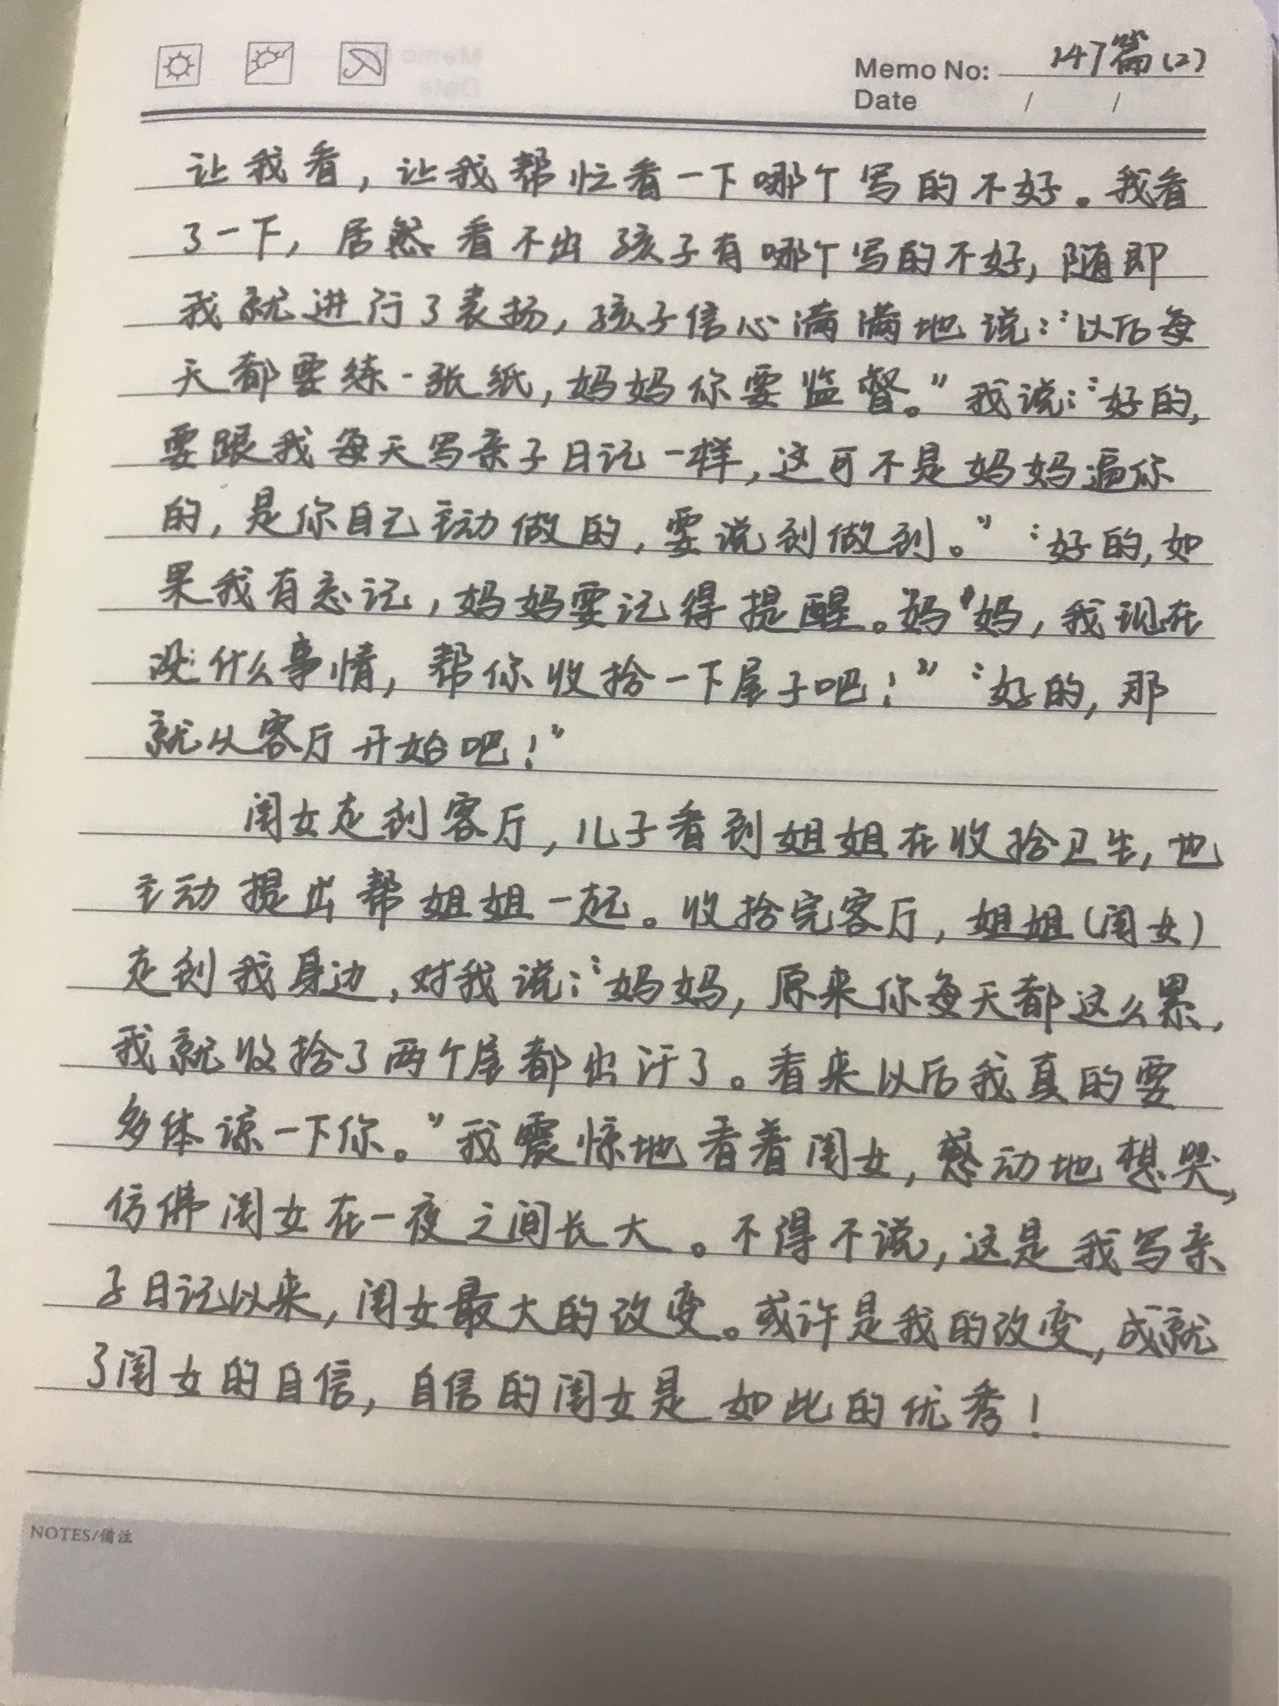 Memo No: 147篇(2)
Date / /
让我看，让我帮忙看一下哪个写的不好。我看
了一下，居然看不出孩子有哪个写的不好，随即
我就进行了表扬，孩子信心满满地说：“以后每
天都要练一张纸，妈妈你要监督。”我说：“好的，
要跟我每天写亲子日记一样，这可不是妈妈逼你
的，是你自己主动做的，要说到做到。”“好的，如
果我有忘记，妈妈要记得提醒。妈妈，我现在
没什么事情，帮你收拾一下屋子吧！”“好的，那
就从客厅开始吧！”
闺女走到客厅，儿子看到姐姐在收拾卫生，也
主动提出帮姐姐一起。收拾完客厅，姐姐（闺女）
走到我身边，对我说：“妈妈，原来你每天都这么累，
我就收拾了两个屋都出汗了。看来以后我真的要
多体谅一下你。”我震惊地看着闺女，感动地想哭，
仿佛闺女在一夜之间长大。不得不说，这是我写亲
子日记以来，闺女最大的改变。或许是我的改变，成就
了闺女的自信，自信的闺女是如此的优秀！
NOTES/備注